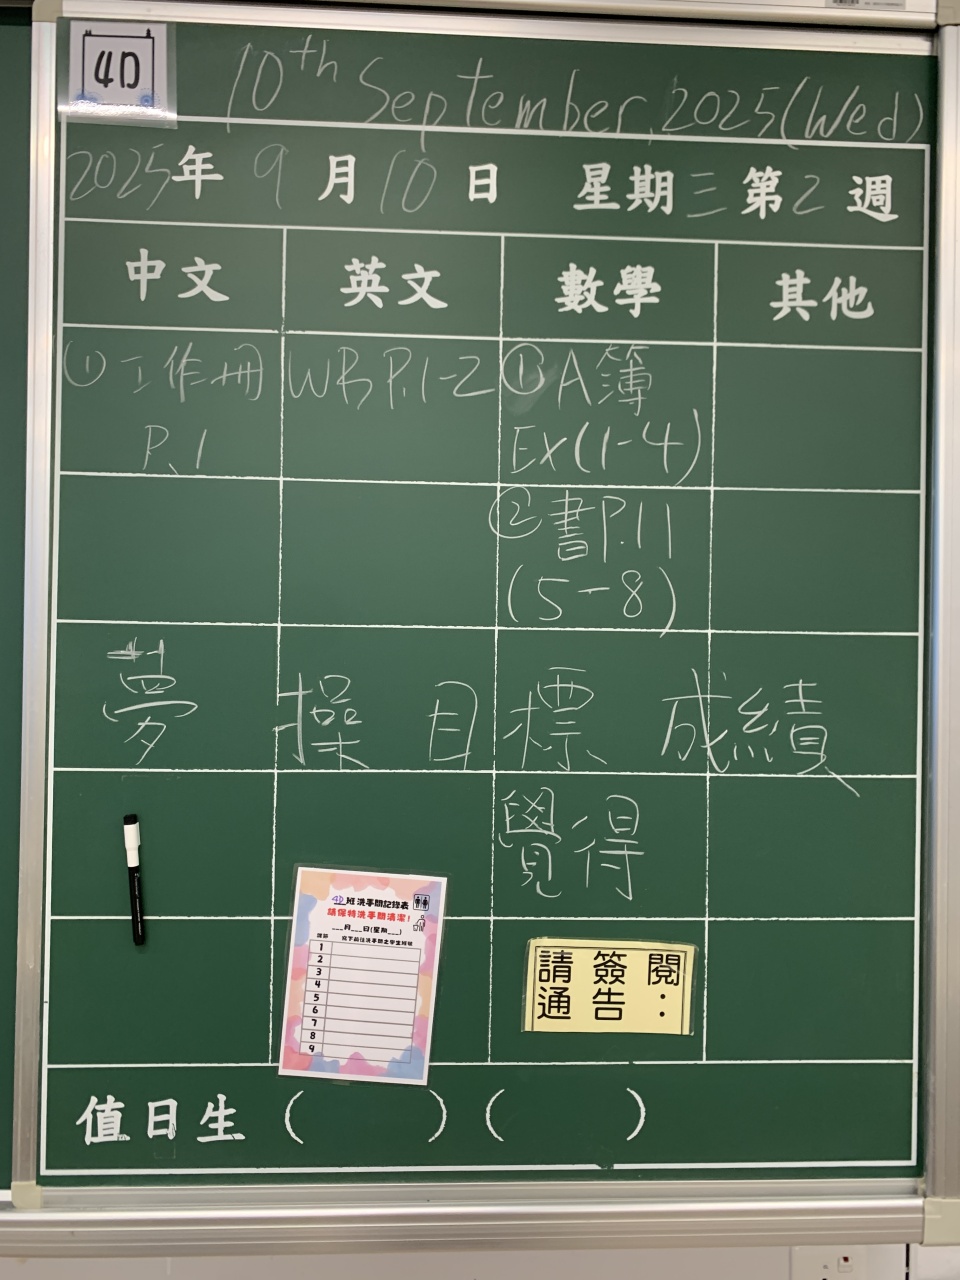 4D
10th September, 2025 (Wed)
2025年 9月10日 星期三 第2週
中文 英文 數學 其他
①工作冊 WB P.1-2 ①A簿
P.1 Ex(1-4)
②書P.11
(5-8)
夢 操 目 標 成績
覺得
4D班洗手間記錄表
請保持洗手間清潔!
___月___日(星期___)
課節 寫下前往洗手間之學生班號
1
2
3
4
5
6
7
8
9
請簽閱
通告:
值日生 ( ) ( )